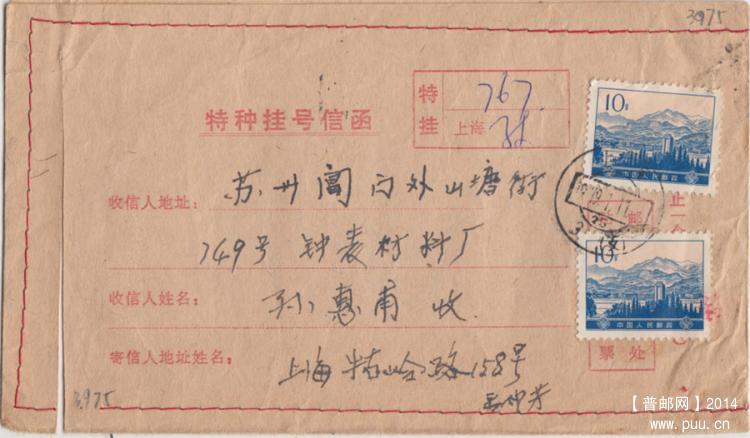 3975
特种挂号信函
特挂
767
上海
10分
中国人民邮政
收信人地址：苏州阊门外山塘街
749号 钟表材料厂
收信人姓名：孙惠甫 收
寄信人地址姓名：上海 牯岭路158号
10分
中国人民邮政
票处
3975
【普邮网】2014
www.puu.cn